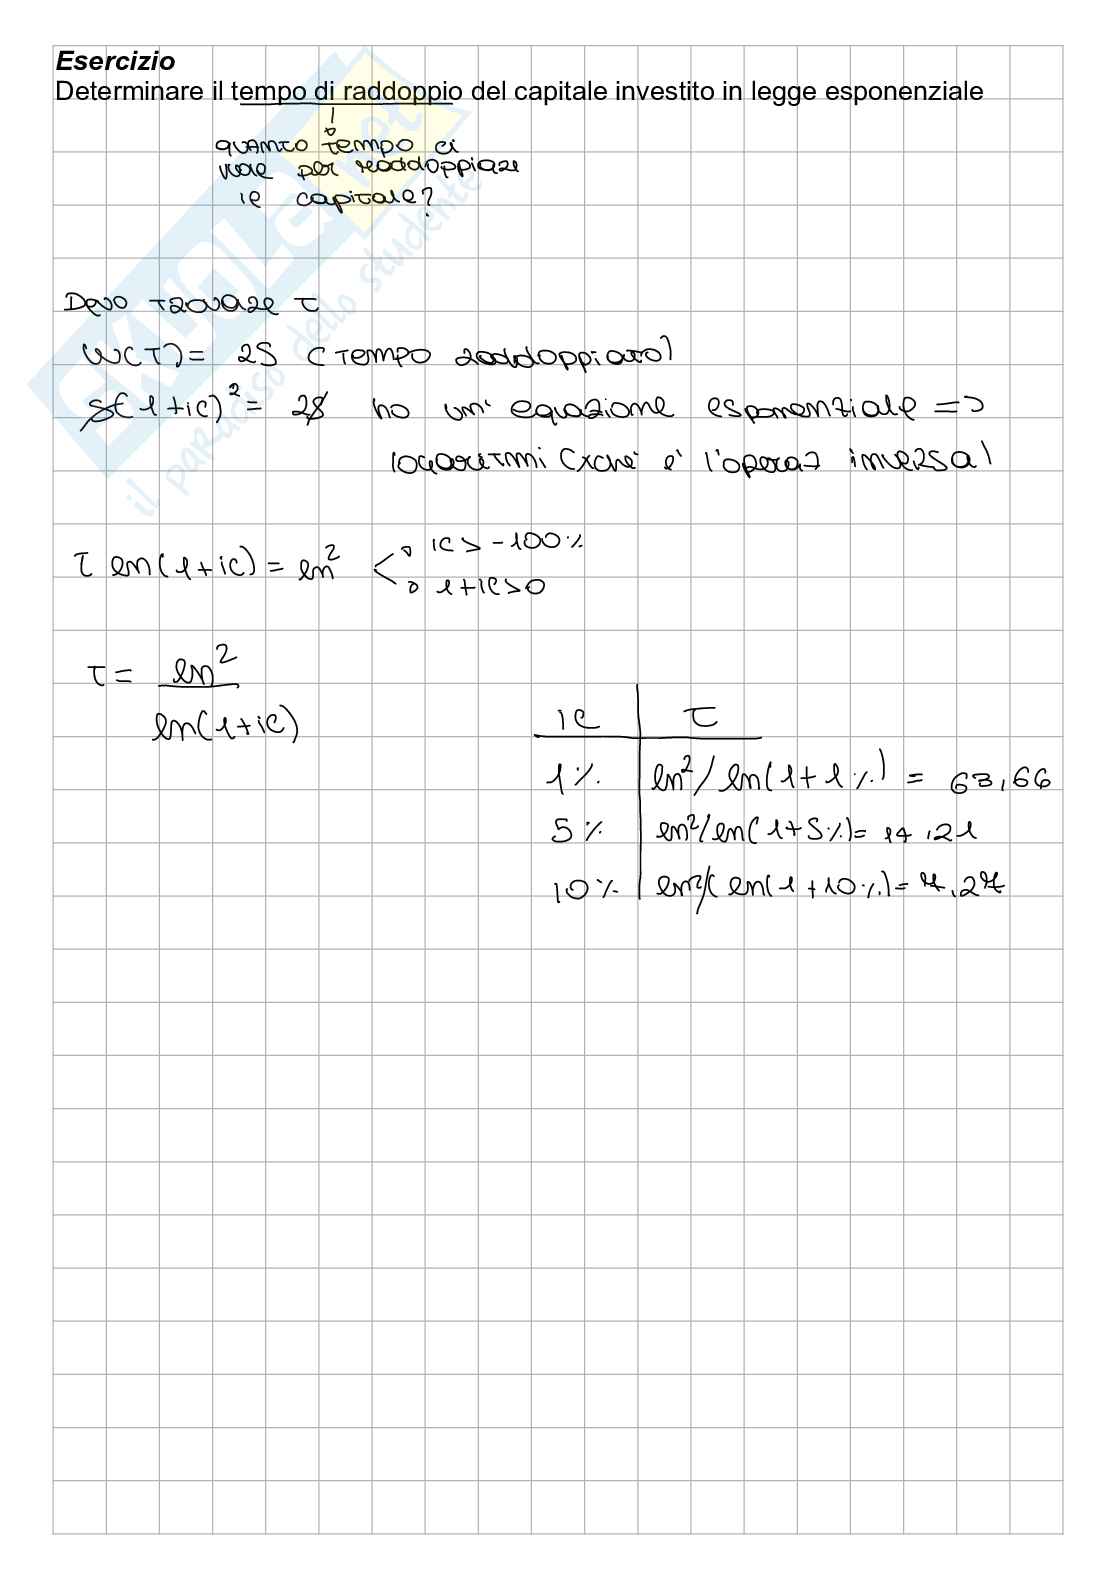 Esercizio
Determinare il tempo di raddoppio del capitale investito in legge esponenziale
quanto tempo ci
vuole per raddoppiare
il capitale?
Devo trovare τ
W(τ) = 2S (tempo raddoppiato)
S(1+ic)² = 2S ho un' equazione esponenziale =>
logaritmi (xché è l'operaz inversa)
τ ln(1+ic) = ln² < ic > -100%
1+ic>0
τ = ln²
ln(1+ic)
ic τ
1% ln²/ ln(1+1%) = 69,66
5% ln²/ln(1+5%) = 14,21
10% ln²/( ln(1+10%) = 7,27
SKUOLA.net
il paradiso dello studente